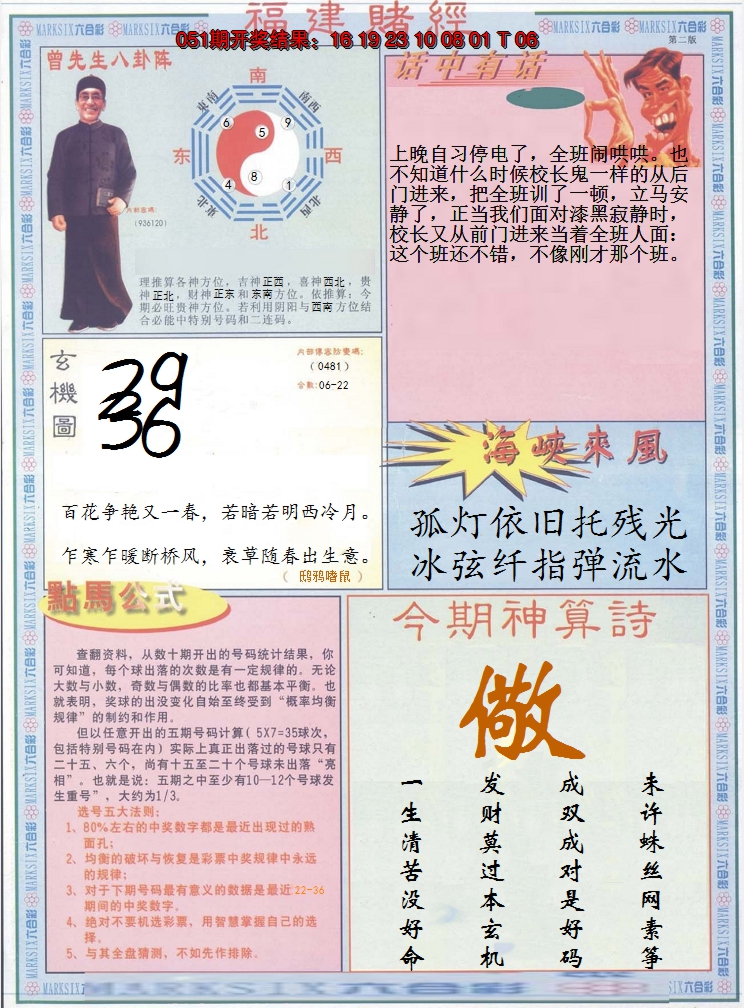 福建賭經
051期开奖结果: 16 19 23 10 08 01 T 06
第二版
MARKSIX六合彩
曾先生八卦阵
南
东南
西南
东
西
6
5
9
4
8
1
东北
西北
北
内部密碼:
(936120)
理推算各神方位，吉神正西，喜神西北，贵
神正北，财神正东和东南方位。依推算：今
期必旺贵神方位。若利用阴阳与西南方位结
合必能中特别号码和二连码。
话中有话
上晚自习停电了，全班闹哄哄。也
不知道什么时候校长鬼一样的从后
门进来，把全班训了一顿，立马安
静了，正当我们面对漆黑寂静时，
校长又从前门进来当着全班人面：
这个班还不错，不像刚才那个班。
玄機圖
39
36
(0481)
合数:06-22
百花争艳又一春，若暗若明西冷月。
乍寒乍暖断桥风，衰草随春出生意。
（ 鸱鸦嗜鼠 ）
海峽來風
孤灯依旧托残光
冰弦纤指弹流水
點馬公式
查翻资料，从数十期开出的号码统计结果，你
可知道，每个球出落的次数是有一定规律的。无论
大数与小数，奇数与偶数的比率也都基本平衡。也
就表明，奖球的出没变化自始至终受到“概率均衡
规律”的制约和作用。
但以任意开出的五期号码计算( 5X7=35球次，
包括特别号码在内) 实际上真正出落过的号球只有
二十五、六个，尚有十五至二十个号球未出落“亮
相”。也就是说：五期之中至少有10—12个号球发
生重号”，大约为1/3。
选号五大法则:
1、80%左右的中奖数字都是最近出现过的熟
面孔;
2、均衡的破坏与恢复是彩票中奖规律中永远
的规律;
3、对于下期号码最有意义的数据是最近22-36
期间的中奖数字。
4、绝对不要机选彩票，用智慧掌握自己的选
择。
5、与其全盘猜测，不如先作排除。
今期神算詩
儆
一生清苦没好命
发财莫过本玄机
成双成对是好码
未许蛛丝网素筝